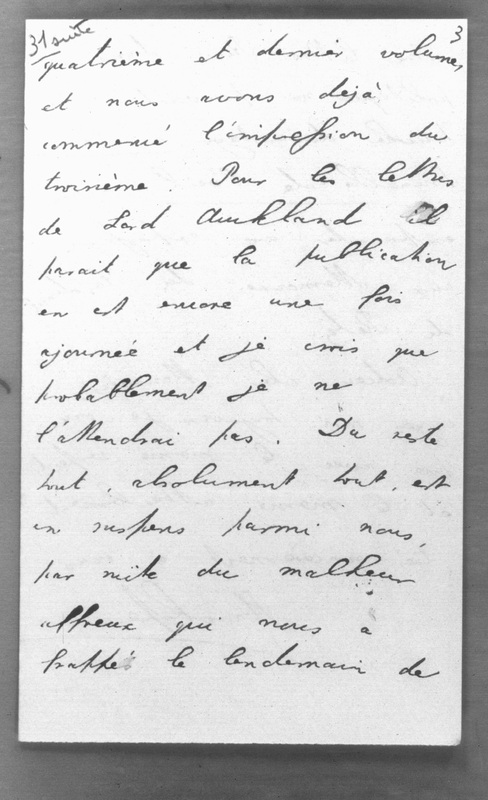 31 suite
3
quatrième et dernier volume,
et nous avons déjà
commencé l'impression du
troisième. Pour les lettres
de Lord Auckland il
parait que la publication
en est encore une fois
ajournée et je crois que
probablement je ne
l'attendrai pas. Du reste
tout, absolument tout, est
en suspens parmi nous,
par suite du malheur
affreux qui nous a
frappés le lendemain de